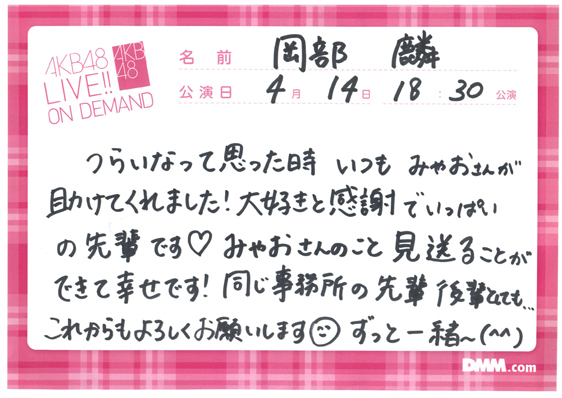 AKB48
LIVE!!
ON DEMAND
AKB
48
名前 岡部 麟
公演日 4月 14日 18:30 公演
つらいなって思った時 いつも みやおさんが
助けてくれました!大好きと感謝でいっぱい
の先輩です♡ みやおさんのこと 見送ることが
できて幸せです!同じ事務所の先輩後輩としても…
これからもよろしくお願いします☺ ずっと一緒〜(^^)
DMM.com